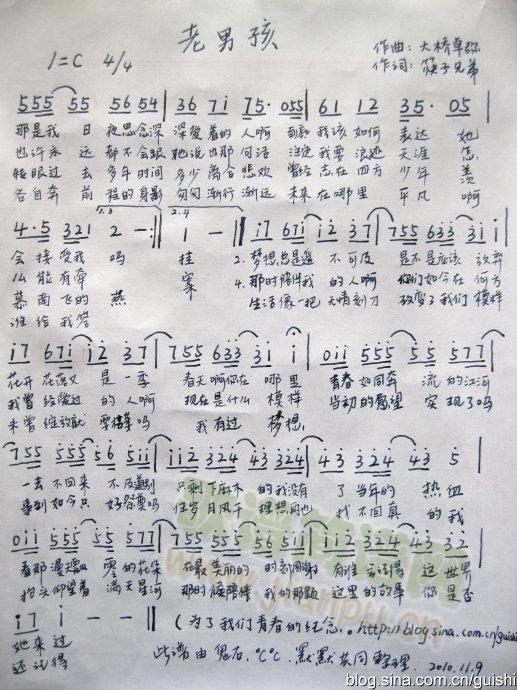 老男孩
1=C 4/4
作曲:大桥卓弥
作词:筷子兄弟
555 55 56 54 | 36 71 75· 055 | 61 12 35· 05 |
那是我 日 夜思念深 深爱着的 人啊 到底 我该 如何 表达 她
也许 永 远 都不会跟 她说出那 句话 注定 我要 浪迹 天涯 怎
转眼过 去 多年时间 多少离合 悲欢 曾经 志在 四方 少年 羡
各自奔 前 程的身影 匆匆渐行 渐远 未来 在哪 里 平凡 啊
1.3 2.4
4·5 321 2 - :| 1 - | 17 671 12 37 | 755 633 31 1 |
会 接受我 吗 挂 2. 梦想总是遥 不可及 是不是应该 放弃
么 能有牵 案 4. 那时陪伴我 的人啊 你们如今在 何方
慕 南飞的 燕 生活像一把 无情刻刀 改变了我们 模样
谁 给我答
17 671 12 37 | 755 633 31 1 | 011 555 55 577 |
花开 花落又 是一季 春天啊你在 哪里 青春 如同奔 流的江河
我曾 经爱过 的人啊 现在是什么 模样 当初的愿望 实现了吗
未曾 绽放就 要枯萎吗 我有过 梦想
755 555 56 51 | 112 324 43 324 | 43 324 43 5 |
一去 不回来 不及道别 只剩下麻木 的我没有 了当年的 热血
事到 如今只 好祭奠吗 任岁月风干 理想再也 找不回真 的我
011 555 55 577 | 755 555 56 511 | 112 324 43 22 |
看那 漫天飘 零的花朵 在最 美丽的 时刻凋谢 有谁 会记得 这世界
抬头 仰望着 满天星河 那时候陪伴 我的那颗 这里的故事 你是否
17 1 - - ||
她来 过
还记得
(为了我们青春的纪念。http://blog.sina.com.cn/guishi
此谱由 男石、℃℃、默默共同整理. 2010.11.9
www.jianpu.cn
blog.sina.com.cn/guishi